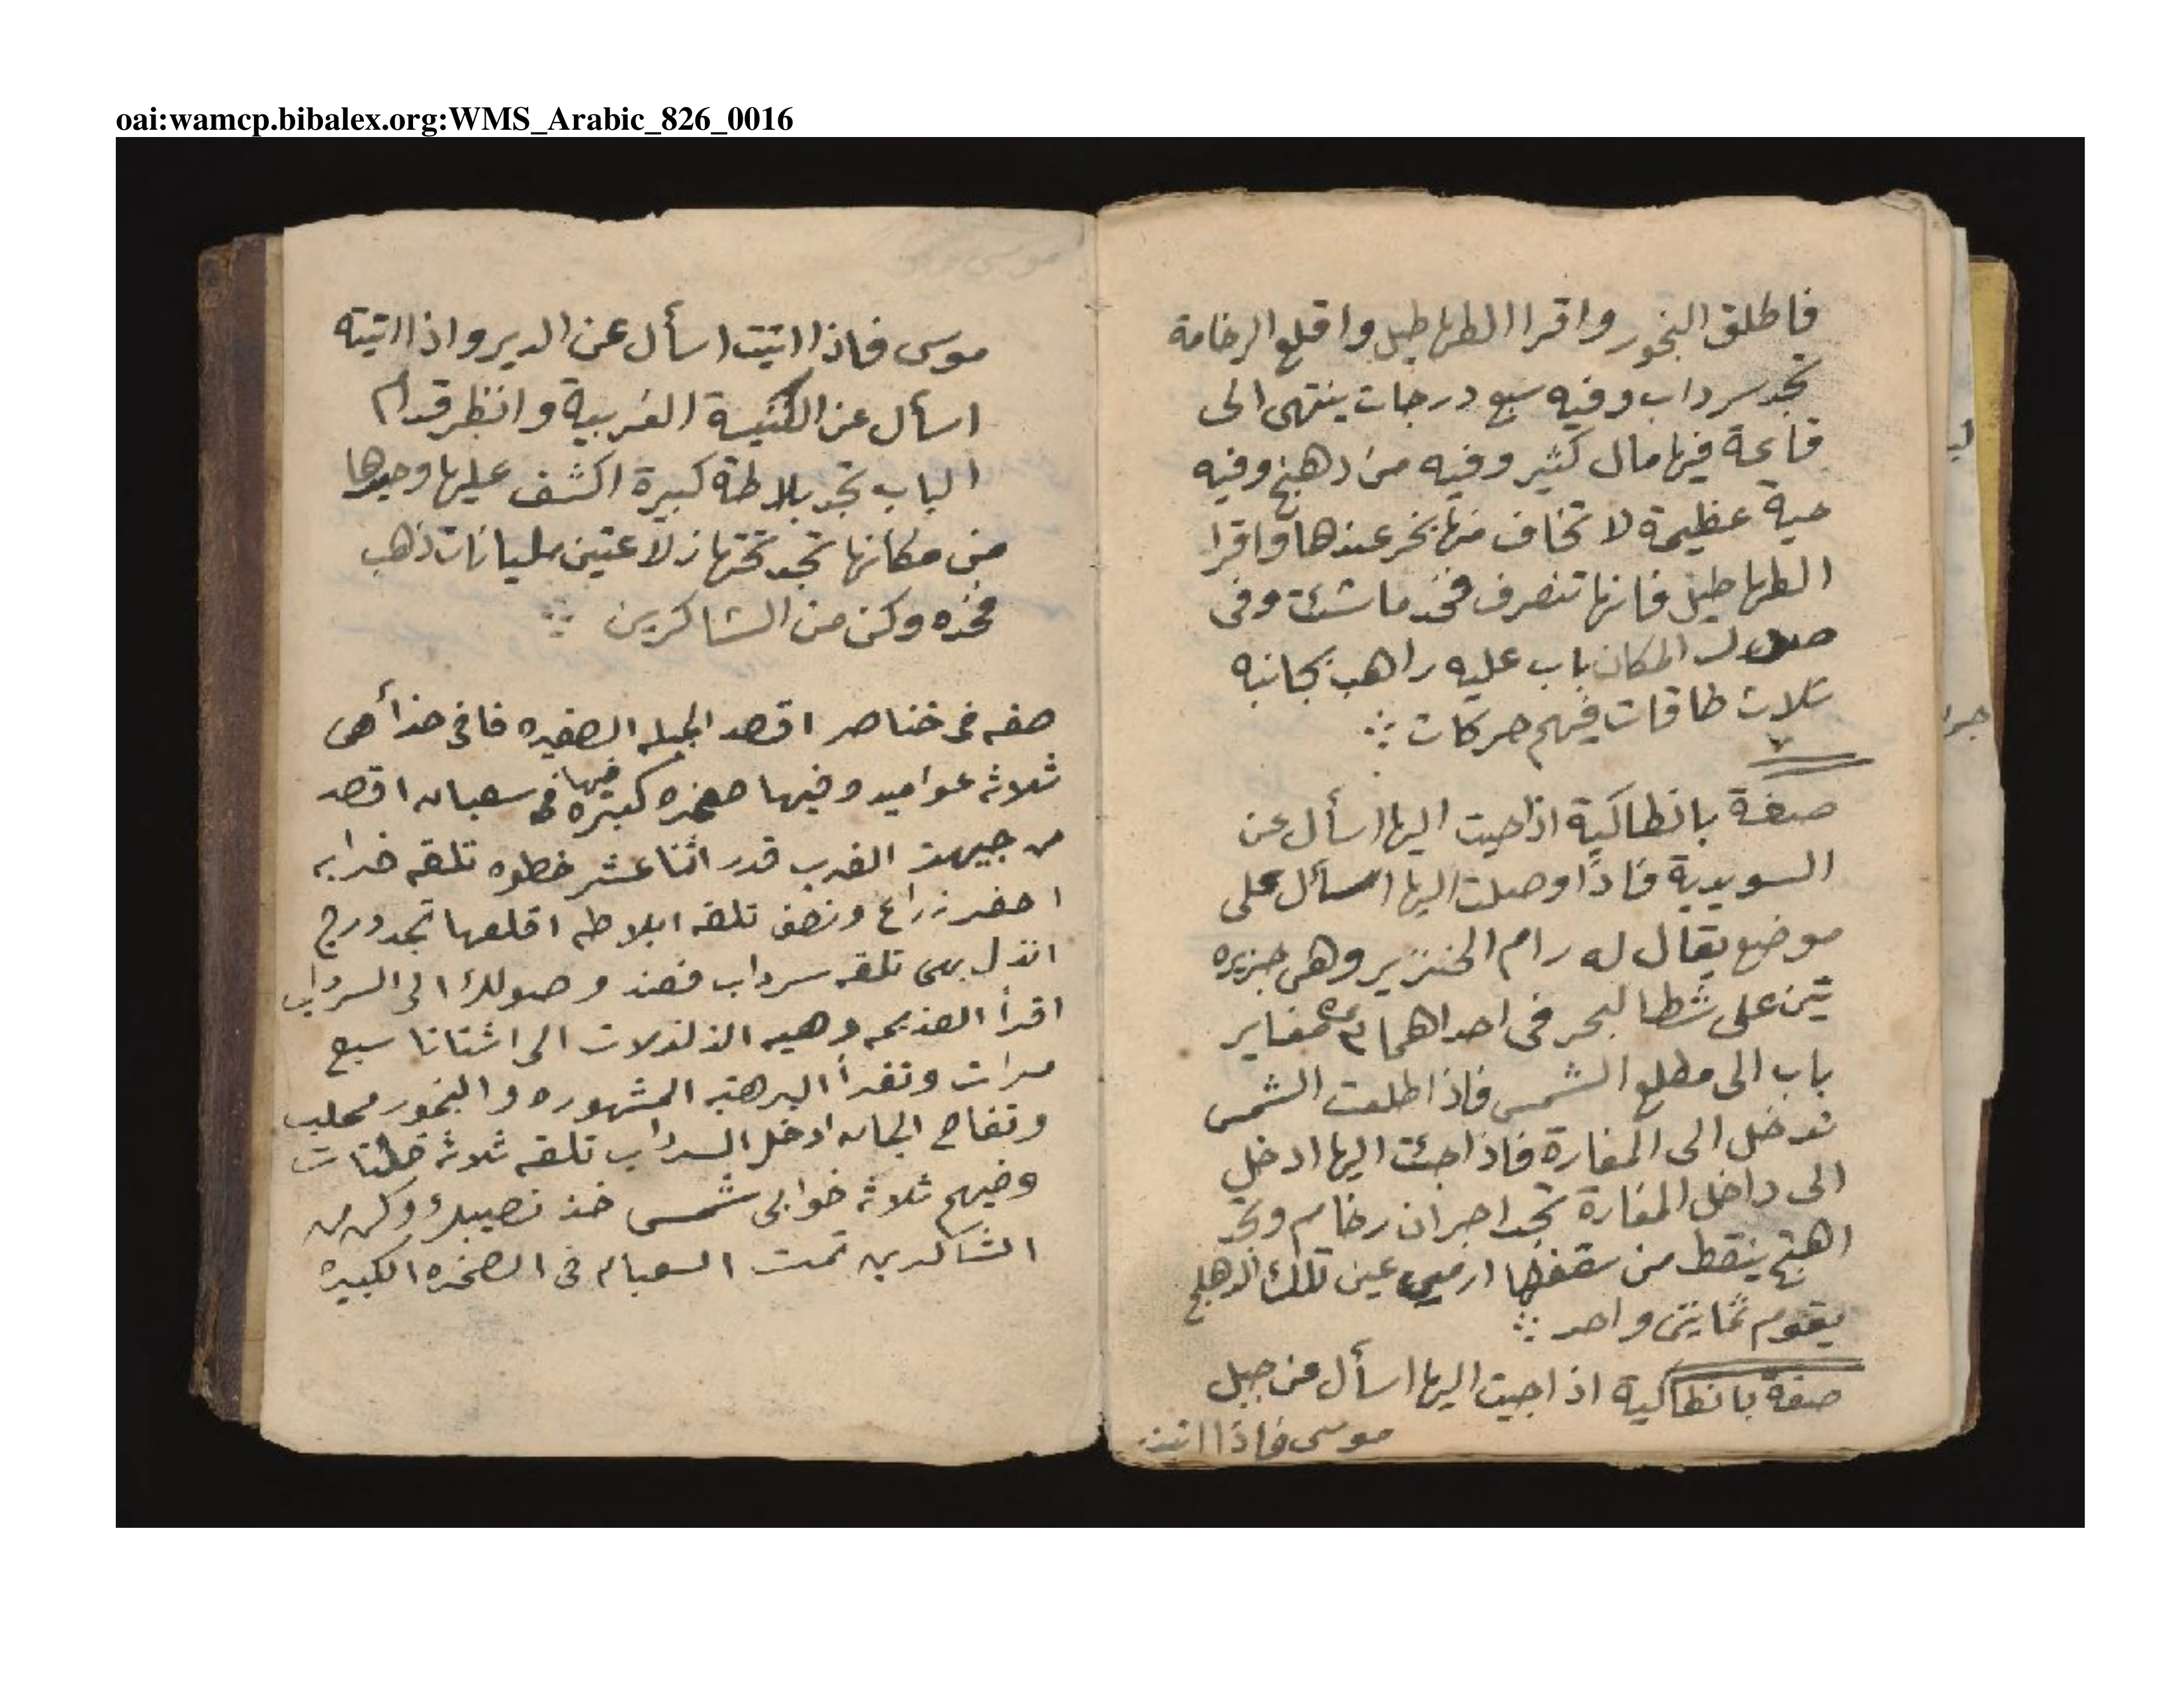 oai:wamcp.bibalex.org:WMS_Arabic_826_0016
فاطلق البخور واقرا الطهاطيل واقلع الرخامة
تجد سرداب وفيه سبع درجات ينتهى الى
قاعة فيها مال كثير وفيه من دهنج وفيه
حية عظيمة لا تخاف منها بخر عندها واقرا
الطهاطيل فانها تنصرف فخد ما شئت وفى
المكان باب عليه راهب بجانبه
تلات طاقات فيهم حركات
صفة بانطاكية اذا جيت اليها اسأل عن
السويدية فاذا وصلت اليها اسأل على
موضع يقال له رام الخنزير وهى جزيره
تين على شط البحر فى احداهما مغاير
باب الى مطلع الشمس فاذا طلعت الشمس
تدخل الى المغارة فاذا جئت اليها ادخل
الى داخل المغارة تجد اجران رخام وتجد
ينقط من سقفها عين تلك
يقوم ثمانين واحد
صفة بانطاكية اذا جيت اليها اسأل عن جبل
موسى فاذا اتيت
موسى فاذا اتيت اسأل عن الدير واذا اتيته
اسأل عن الكنيسة الغربية وانظر قدام
الباب تجد بلاطة كبيرة اكشف عليها وحيدها
من مكانها تجد تحتها زلاعتين مليانات ذهب
فخذه وكن من الشاكرين
صفه فى خناصر اقصد الجبله الصغيره فا فى حذا هى
ثلاثة عواميد وفيها صخره كبيره فيها سعبان اقصد
من جيهت الغرب قدر اثنا عشر خطوه تلقه خرابه
احفر زراع ونصف تلقه ابلاطه اقلعها تجد درج
انزل بهى تلقه سرداب فعند وصولك الى السرداب
اقرأ العزيمه وهيه الزلزلات الى اشتاتا سبع
مرات وتقرأ البرهتيه المشهوره والبخور محلب
وتفاح الجان ادخل السرداب تلقه ثلاثة
وفيهم ثلاثة خوابى شمس خذ نصيبك وكن من
الشاكرين تمت السعبان فى الصخره الكبيره